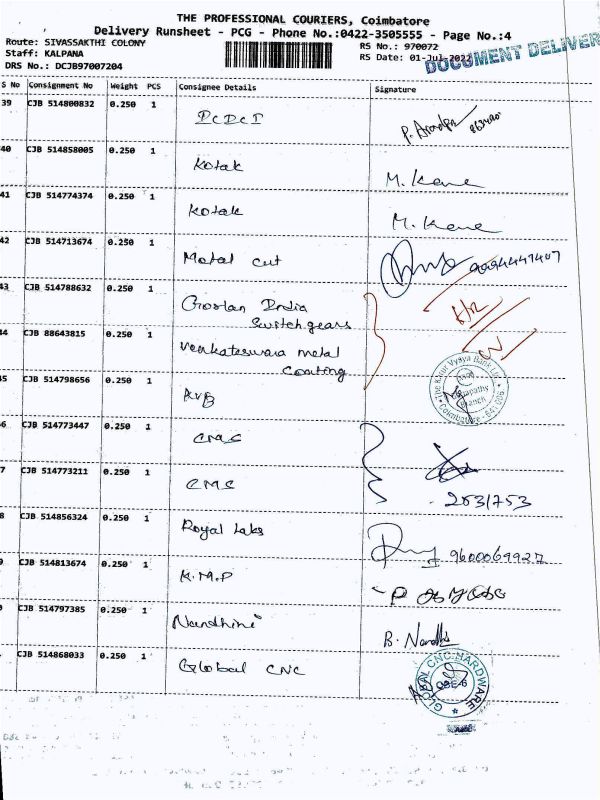 THE PROFESSIONAL COURIERS, Coimbatore
Delivery Runsheet - PCG - Phone No.:0422-3505555 - Page No.:4
Route: SIVASSAKTHI COLONY
Staff: KALPANA
DRS No.: DCJB97007204
RS No.: 970072
RS Date: 01-Jul-2022
DOCUMENT DELIVER
S No Consignment No Weight PCS Consignee Details Signature
39 CJB 514800832 0.250 1 DCDCI
40 CJB 514858005 0.250 1 Kotak M. Kane
41 CJB 514774374 0.250 1 Kotak M. Kane
42 CJB 514713674 0.250 1 Metal cut 9994447407
43 CJB 514788632 0.250 1 India
Switchgears
44 CJB 88643815 0.250 1 Venkateswara metal
Coating
45 CJB 514798656 0.250 1 KVB
The Karur Vysya Bank Ltd
Branch
Coimbatore - 641 006
6 CJB 514773447 0.250 1 CMS
7 CJB 514773211 0.250 1 CMS
263/753
8 CJB 514856324 0.250 1 Royal Labs 9600069927
CJB 514813674 0.250 1 K.M.P
CJB 514797385 0.250 1 Nandhini B. Nandhi
CJB 514868033 0.250 1 Global CNC
GLOBAL CNC HARDWARE
CBE-6